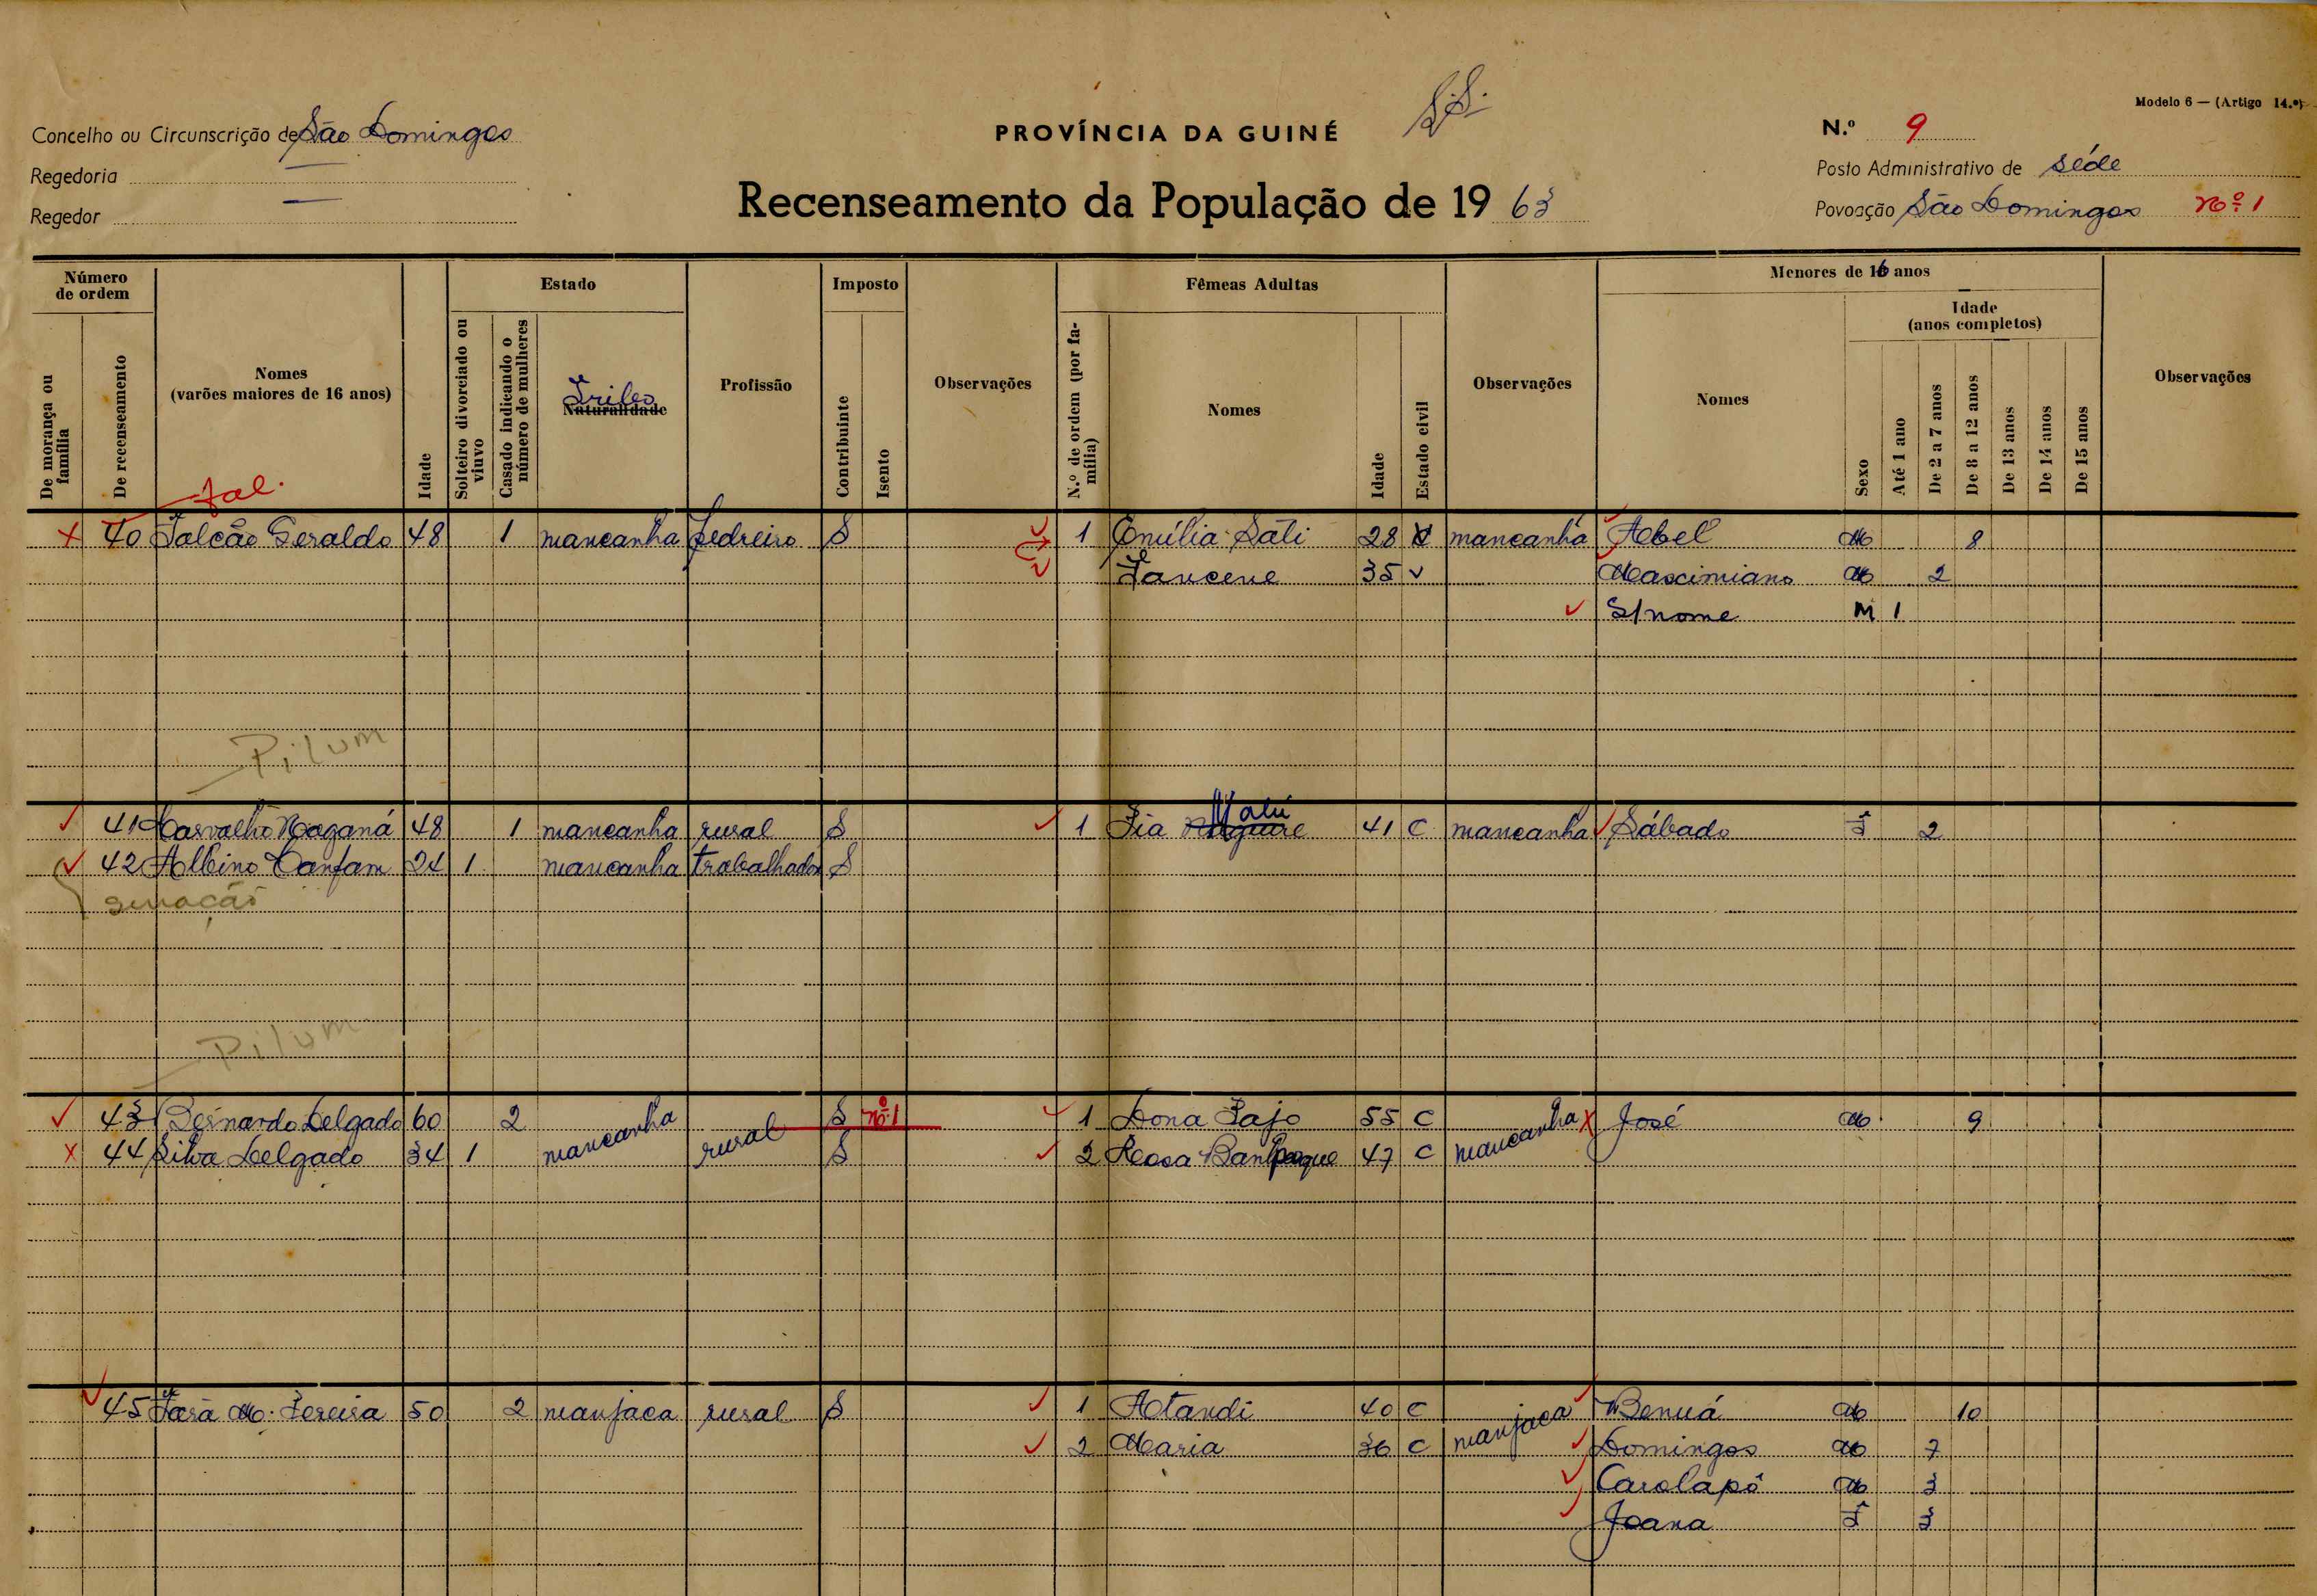 Modelo 6 — (Artigo 14.º)
Concelho ou Circunscrição de São Domingos
PROVÍNCIA DA GUINÉ
N.º 9
Regedoria —
Posto Administrativo de séde
Regedor —
Recenseamento da População de 19 63
Povoação São Domingos nº 1
Número de ordem
Estado
Imposto
Fêmeas Adultas
Menores de 16 anos
Idade (anos completos)
De morança ou família
De recenseamento
Nomes (varões maiores de 16 anos)
Idade
Solteiro divorciado ou viuvo
Casado indicando o número de mulheres
Tribo
Naturalidade
Profissão
Contribuinte
Isento
Observações
N.º de ordem (por família)
Nomes
Idade
Estado civil
Observações
Nomes
Sexo
Até 1 ano
De 2 a 7 anos
De 8 a 12 anos
De 13 anos
De 14 anos
De 15 anos
Observações
fal.
40 Falcão Geraldo 48 1 mancanha Pedreiro S 1 Emília Sáti 28 mancanha Abel M 8
35 v Mascimiano M 2
S/nome M 1
Pilum
41 Carvalho Naganá 48 1 mancanha rural S 1 41 C mancanha Sábado F 2
42 Albino Canfam 24 1 mancanha trabalhador S
Pilum
43 Bernardo Delgado 60 2 mancanha rural S nº 1 1 Dona Pajo 55 C mancanha José M 9
44 Silva Delgado 34 1 S 2 Rosa 47 C
45 M. Pereira 50 2 manjaca rural S 1 Atandi 40 C manjaca Benuá M 10
2 Maria 36 C Domingos M 7
Carolapó M 3
Joana F 3